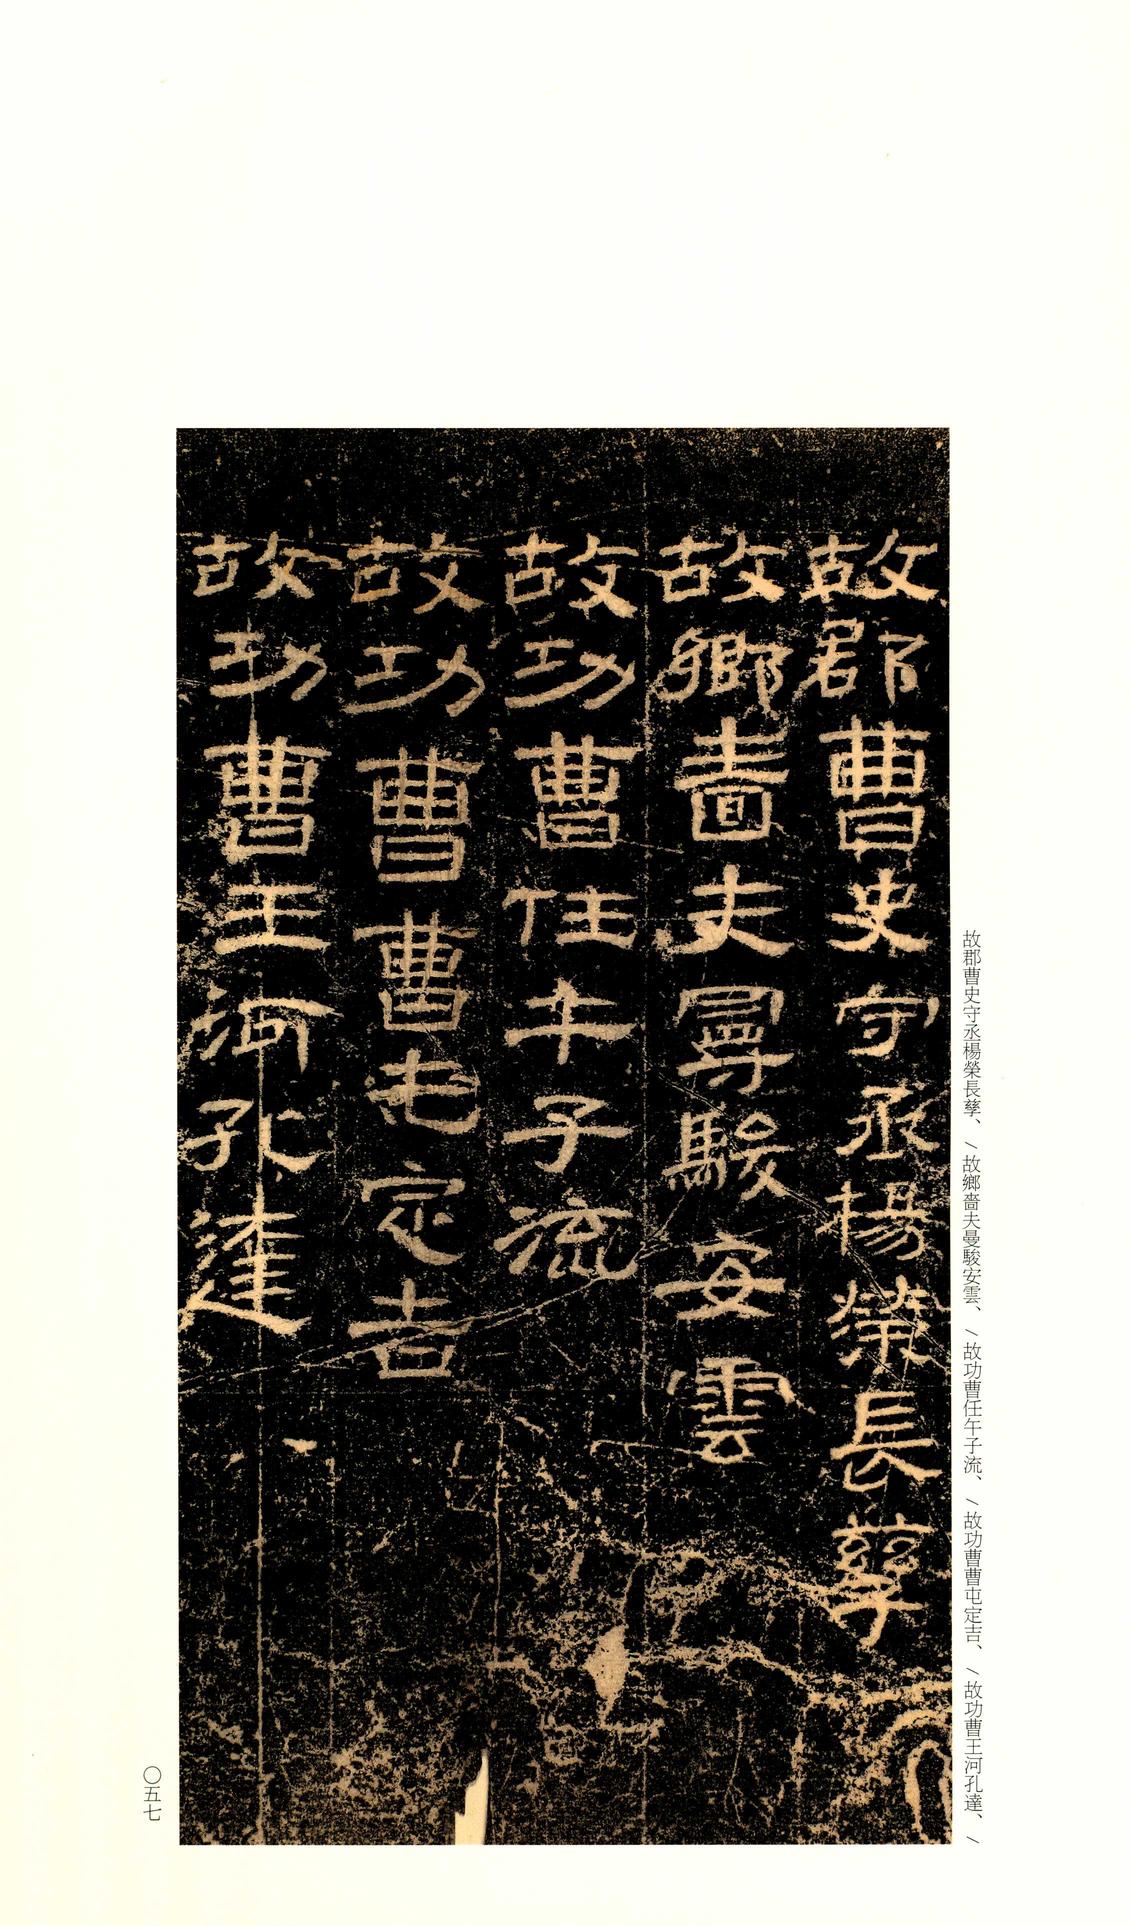 故郡曹史守丞楊榮長孳
故鄉嗇夫曼駿安雲
故功曹任午子流
故功曹曹屯定吉
故功曹王河孔達
故郡曹史守丞楊榮長孳、/故鄉嗇夫曼駿安雲、/故功曹任午子流、/故功曹曹屯定吉、/故功曹王河孔達、/
〇五七